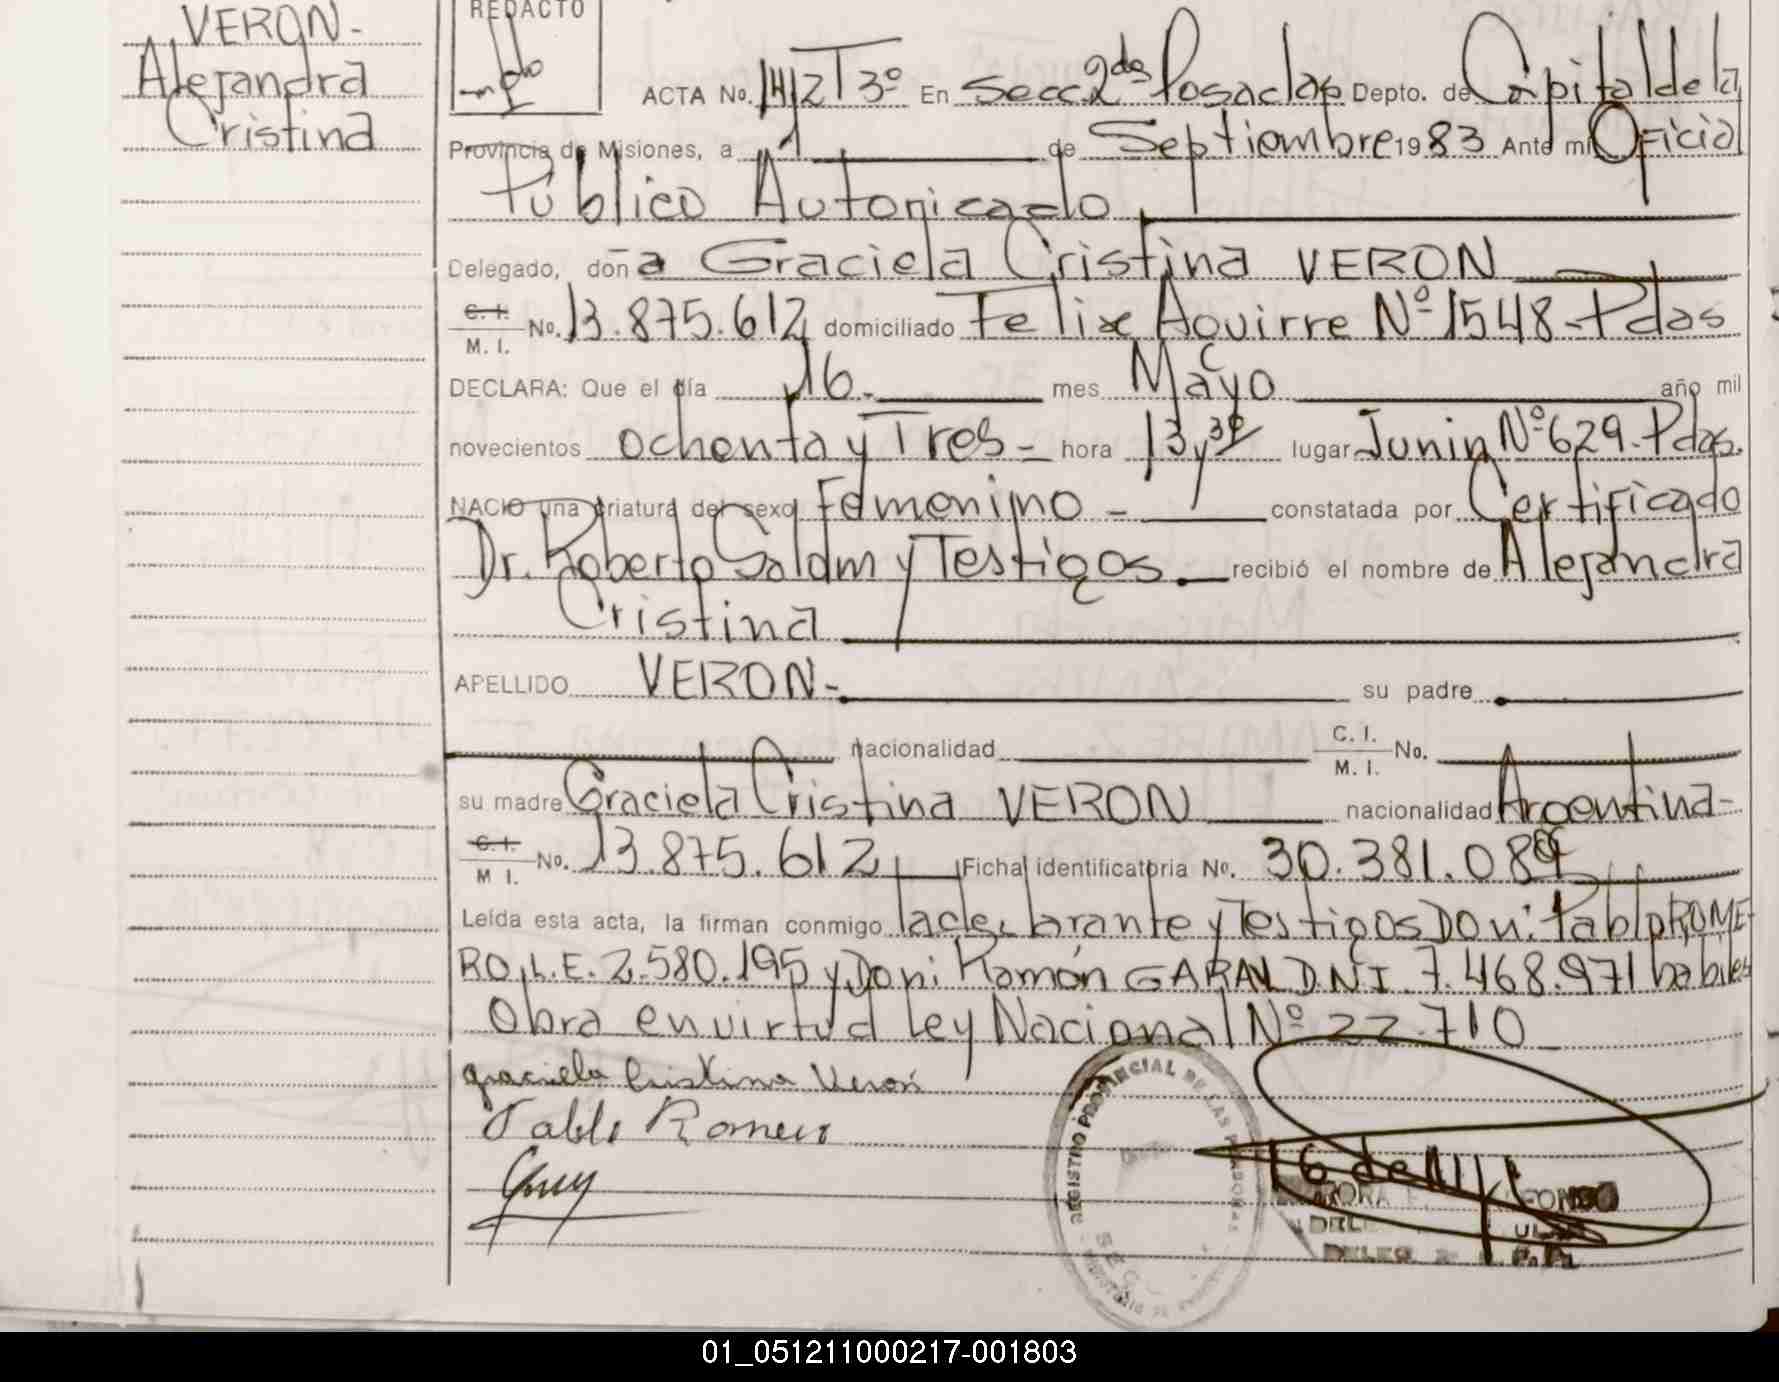 VERON-
Alejandra
Cristina
REDACTO
ACTA No. 1412 T 3º En Secc. 2da Posadas Depto. de Capital de la
Provincia de Misiones, a 1 de Septiembre 1983 Ante mi Oficial
Público Autorizado
Delegado, doña Graciela Cristina VERON
C. I.
M. I. No. 13.875.612 domiciliado Felix Aguirre Nº 1548-Pdas
DECLARA: Que el día 16. mes Mayo año mil
novecientos ochenta y Tres- hora 13 y 30 lugar Junin Nº 629-Pdas.
NACIO una criatura del sexo Femenino - constatada por Certificado
Dr. Roberto y Testigos recibió el nombre de Alejandra
Cristina
APELLIDO VERON- su padre
nacionalidad C. I.
M. I. No.
su madre Graciela Cristina VERON nacionalidad Argentina-
C. I.
M I. No. 13.875.612 Ficha identificatoria No. 30.381.089
Leída esta acta, la firman conmigo la declarante y Testigos Don: Pablo ROME-
RO, L.E. 2.580.195 y Don: Ramón GARAY D.N.I. 7.468.971 habiles
Obra en virtud Ley Nacional Nº 22.710
graciela Cristina Verón
Pablo Romero
REGISTRO PROVINCIAL DE LAS PERSONAS
01_051211000217-001803